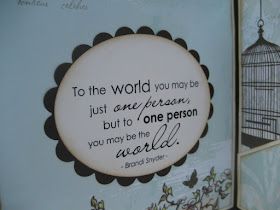 To the world you may be
just one person,
but to one person
you may be the
world.
- Brandi Snyder -